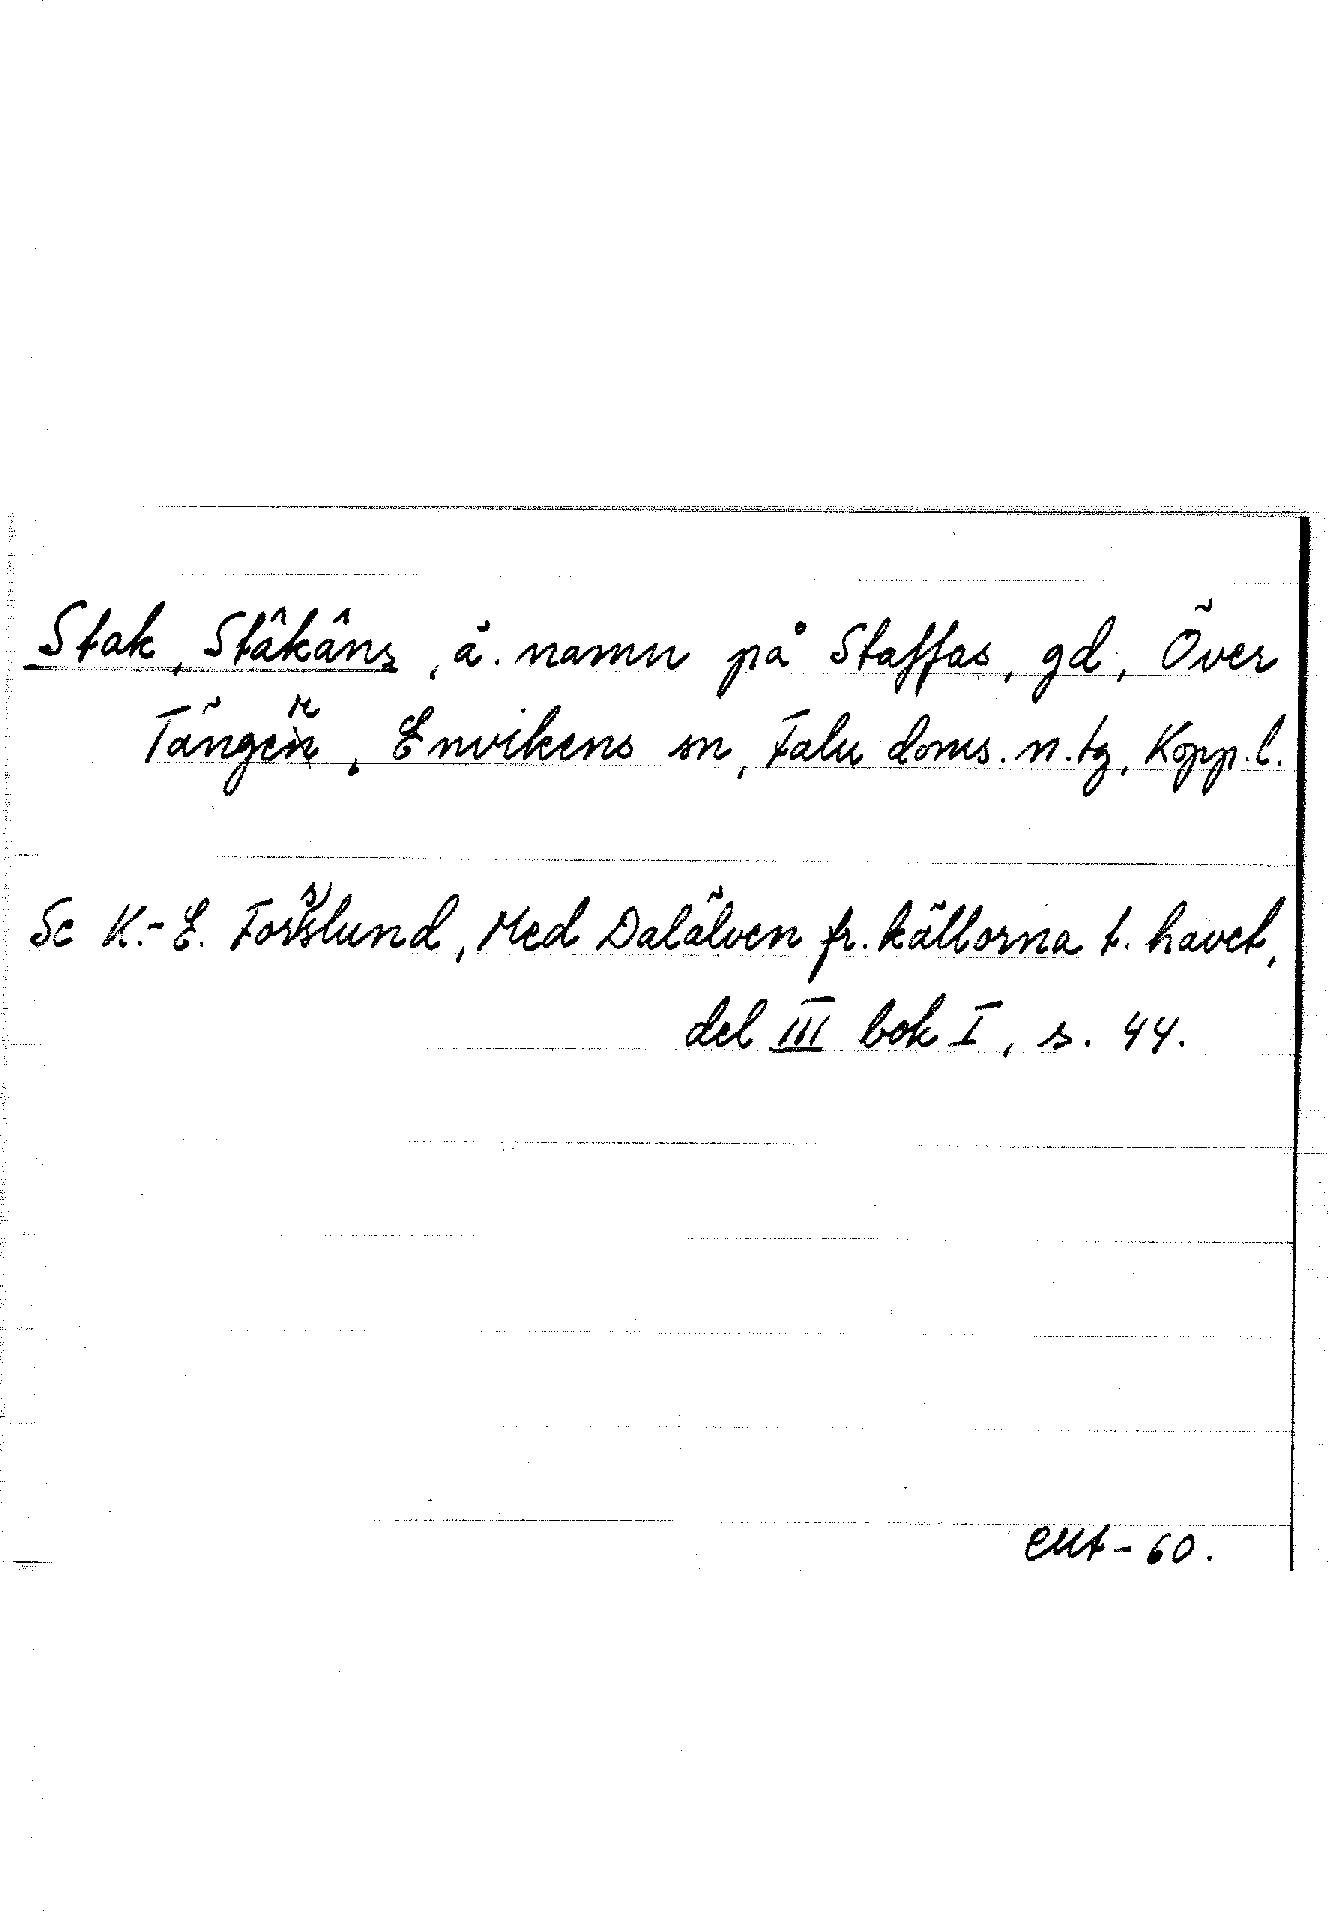 Stak, Stâkâns, ä. namn på Staffas, gd, Över
Tänger, Envikens sn, Falu doms. n. tg, Kopp. l.
Se K.-E. Forsslund, Med Dalälven fr. källorna t. havet,
del III bok I, s. 44.
EMt-60.